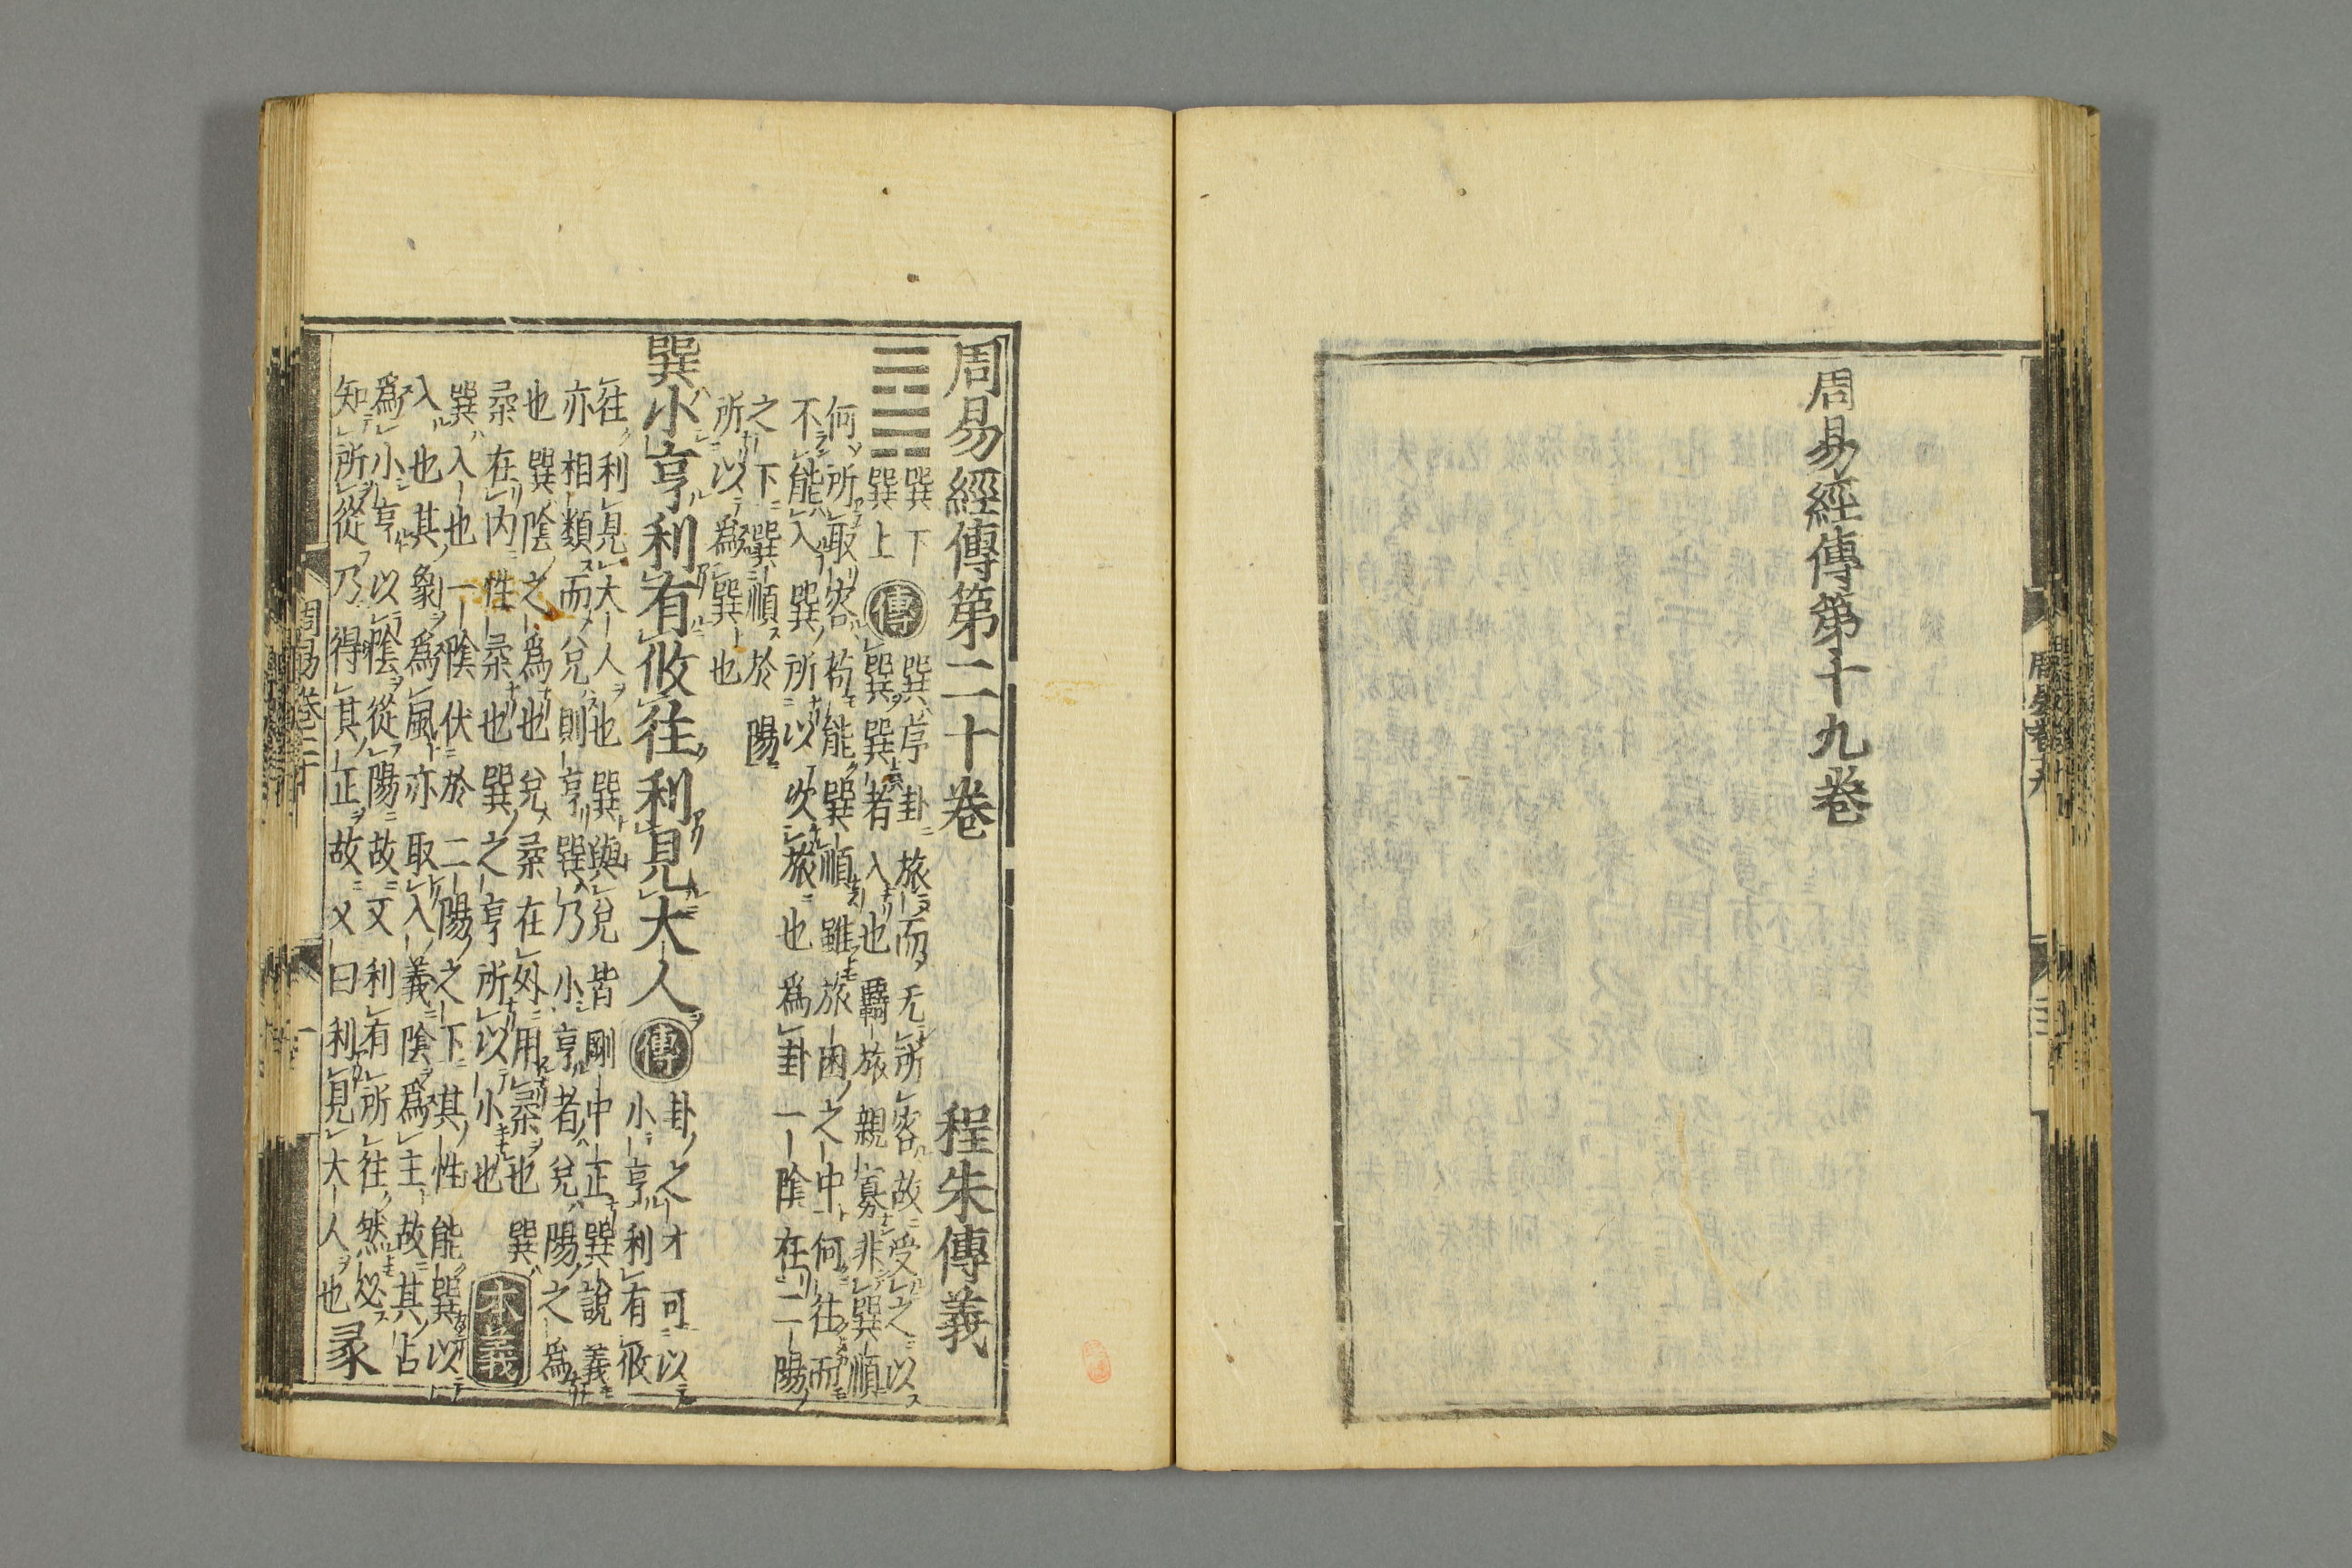 周易經傳第十九卷
周易經傳第二十卷 程朱傳義
巽下
巽上
傳
巽序卦旅而无所容故受之以
巽巽者入也羈旅親寡非巽順
何所取容苟能巽順雖旅困之中何往而
不能入巽所以次旅也爲卦一陰在二陽
之下巽順於陽
所以爲巽也
巽小亨利有攸往利見大人
傳
卦之才可以
小亨利有攸
往利見大人也巽與兌皆剛中正巽說義
亦相類而兌則亨巽乃小亨者兌陽之爲
也巽陰之爲也兌柔在外用柔也巽
柔在內性柔也巽之亨所以小也
本義
巽入也一陰伏於二陽之下其性能巽以
入也其象爲風亦取入義陰爲主故其占
爲小亨以陰從陽故又利有所往然必
知所從乃得其正故又曰利見大人也彖
周易卷二十 一